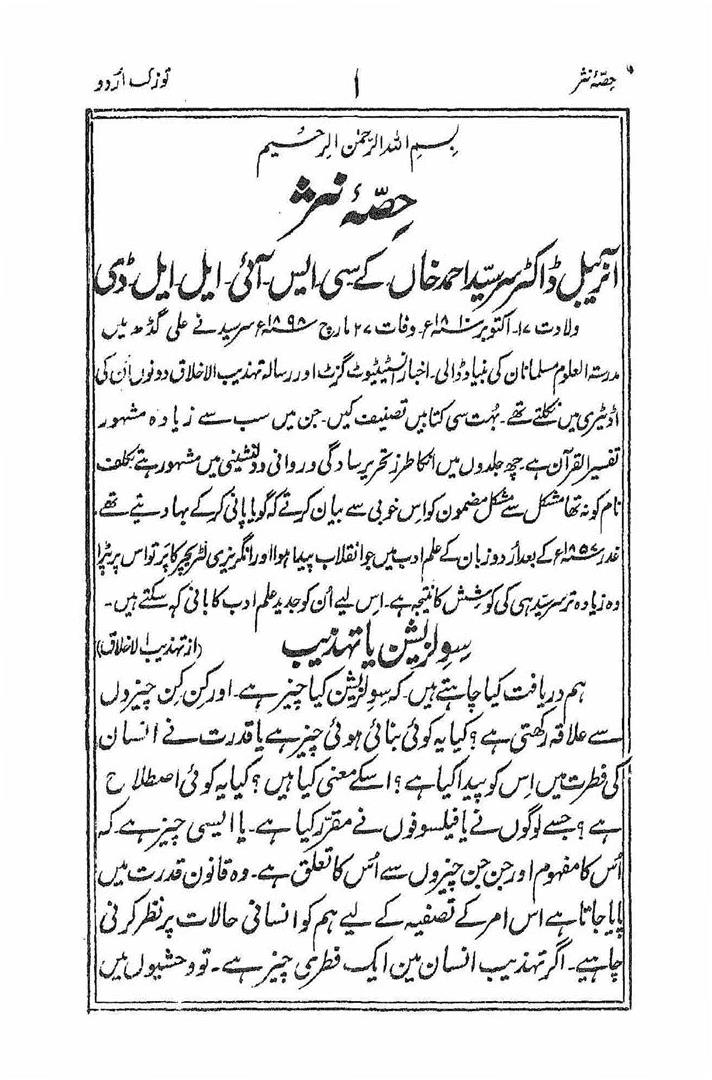 حصۂ نثر ۱ توزک اردو
بسم اللہ الرحمٰن الرحیم
حصۂ نثر
آنریبل ڈاکٹر سر سیّد احمد خاں کے سی۔ ایس۔ آئی۔ ایل۔ ایل۔ ڈی
ولادت ۱۷۔ اکتوبر ۱۸۱۷ء۔ وفات ۲۷ مارچ ۱۸۹۸ء سرسید نے علی گڈھ میں
مدرستہ العلوم مسلمانان کی بنیاد ڈالی۔ اخبار انسٹیٹیوٹ گزٹ اور رسالہ تہذیب الاخلاق دونوں اُن کی
اڈیٹری میں نکلتے تھے۔ بہت سی کتابیں تصنیف کیں۔ جن میں سب سے زیادہ مشہور
تفسیر القرآن ہے۔ چھ جلدوں میں انکا طرز تحریر سادگی و روانی و دلنشینی میں مشہور ہے تکلف
نام کو نہ تھا مشکل سے مشکل مضمون کو اس خوبی سے بیان کرتے کہ گویا پانی کر کے بہا دیتے تھے۔
غدر ۱۸۵۷ء کے بعد اُردو زبان کے علم ادب میں جو انقلاب پیدا ہوا اور انگریزی لٹریچر کا پرتو اس پر پڑا
وہ زیادہ تر سرسیّد ہی کی کوشش کا نتیجہ ہے۔ اس لیے اُن کو جدید علم ادب کا بانی کہہ سکتے ہیں۔
سِولزیشن یا تہذیب (از تہذیب الاخلاق)
ہم دریافت کیا چاہتے ہیں۔ کہ سِولزیشن کیا چیز ہے۔ اور کِن کِن چیزوں
سے علاقہ رکھتی ہے؟ کیا یہ کوئی بنائی ہوئی چیز ہے یا قدرت نے انسان
کی فطرت میں اِس کو پیدا کیا ہے؟ اسکے معنی کیا ہیں؟ کیا یہ کوئی اصطلاح
ہے؟ جسے لوگوں نے یا فیلسوفوں نے مقرّر کیا ہے۔ یا ایسی چیز ہے کہ
اُس کا مفہوم اور جن جن چیزوں سے اُس کا تعلق ہے۔ وہ قانون قدرت میں
پایا جاتا ہے اس امر کے تصفیہ کے لیے ہم کو انسانی حالات پر نظر کرنی
چاہیے۔ اگر تہذیب انسان مین ایک فطری چیز ہے۔ تو وحشیوں میں